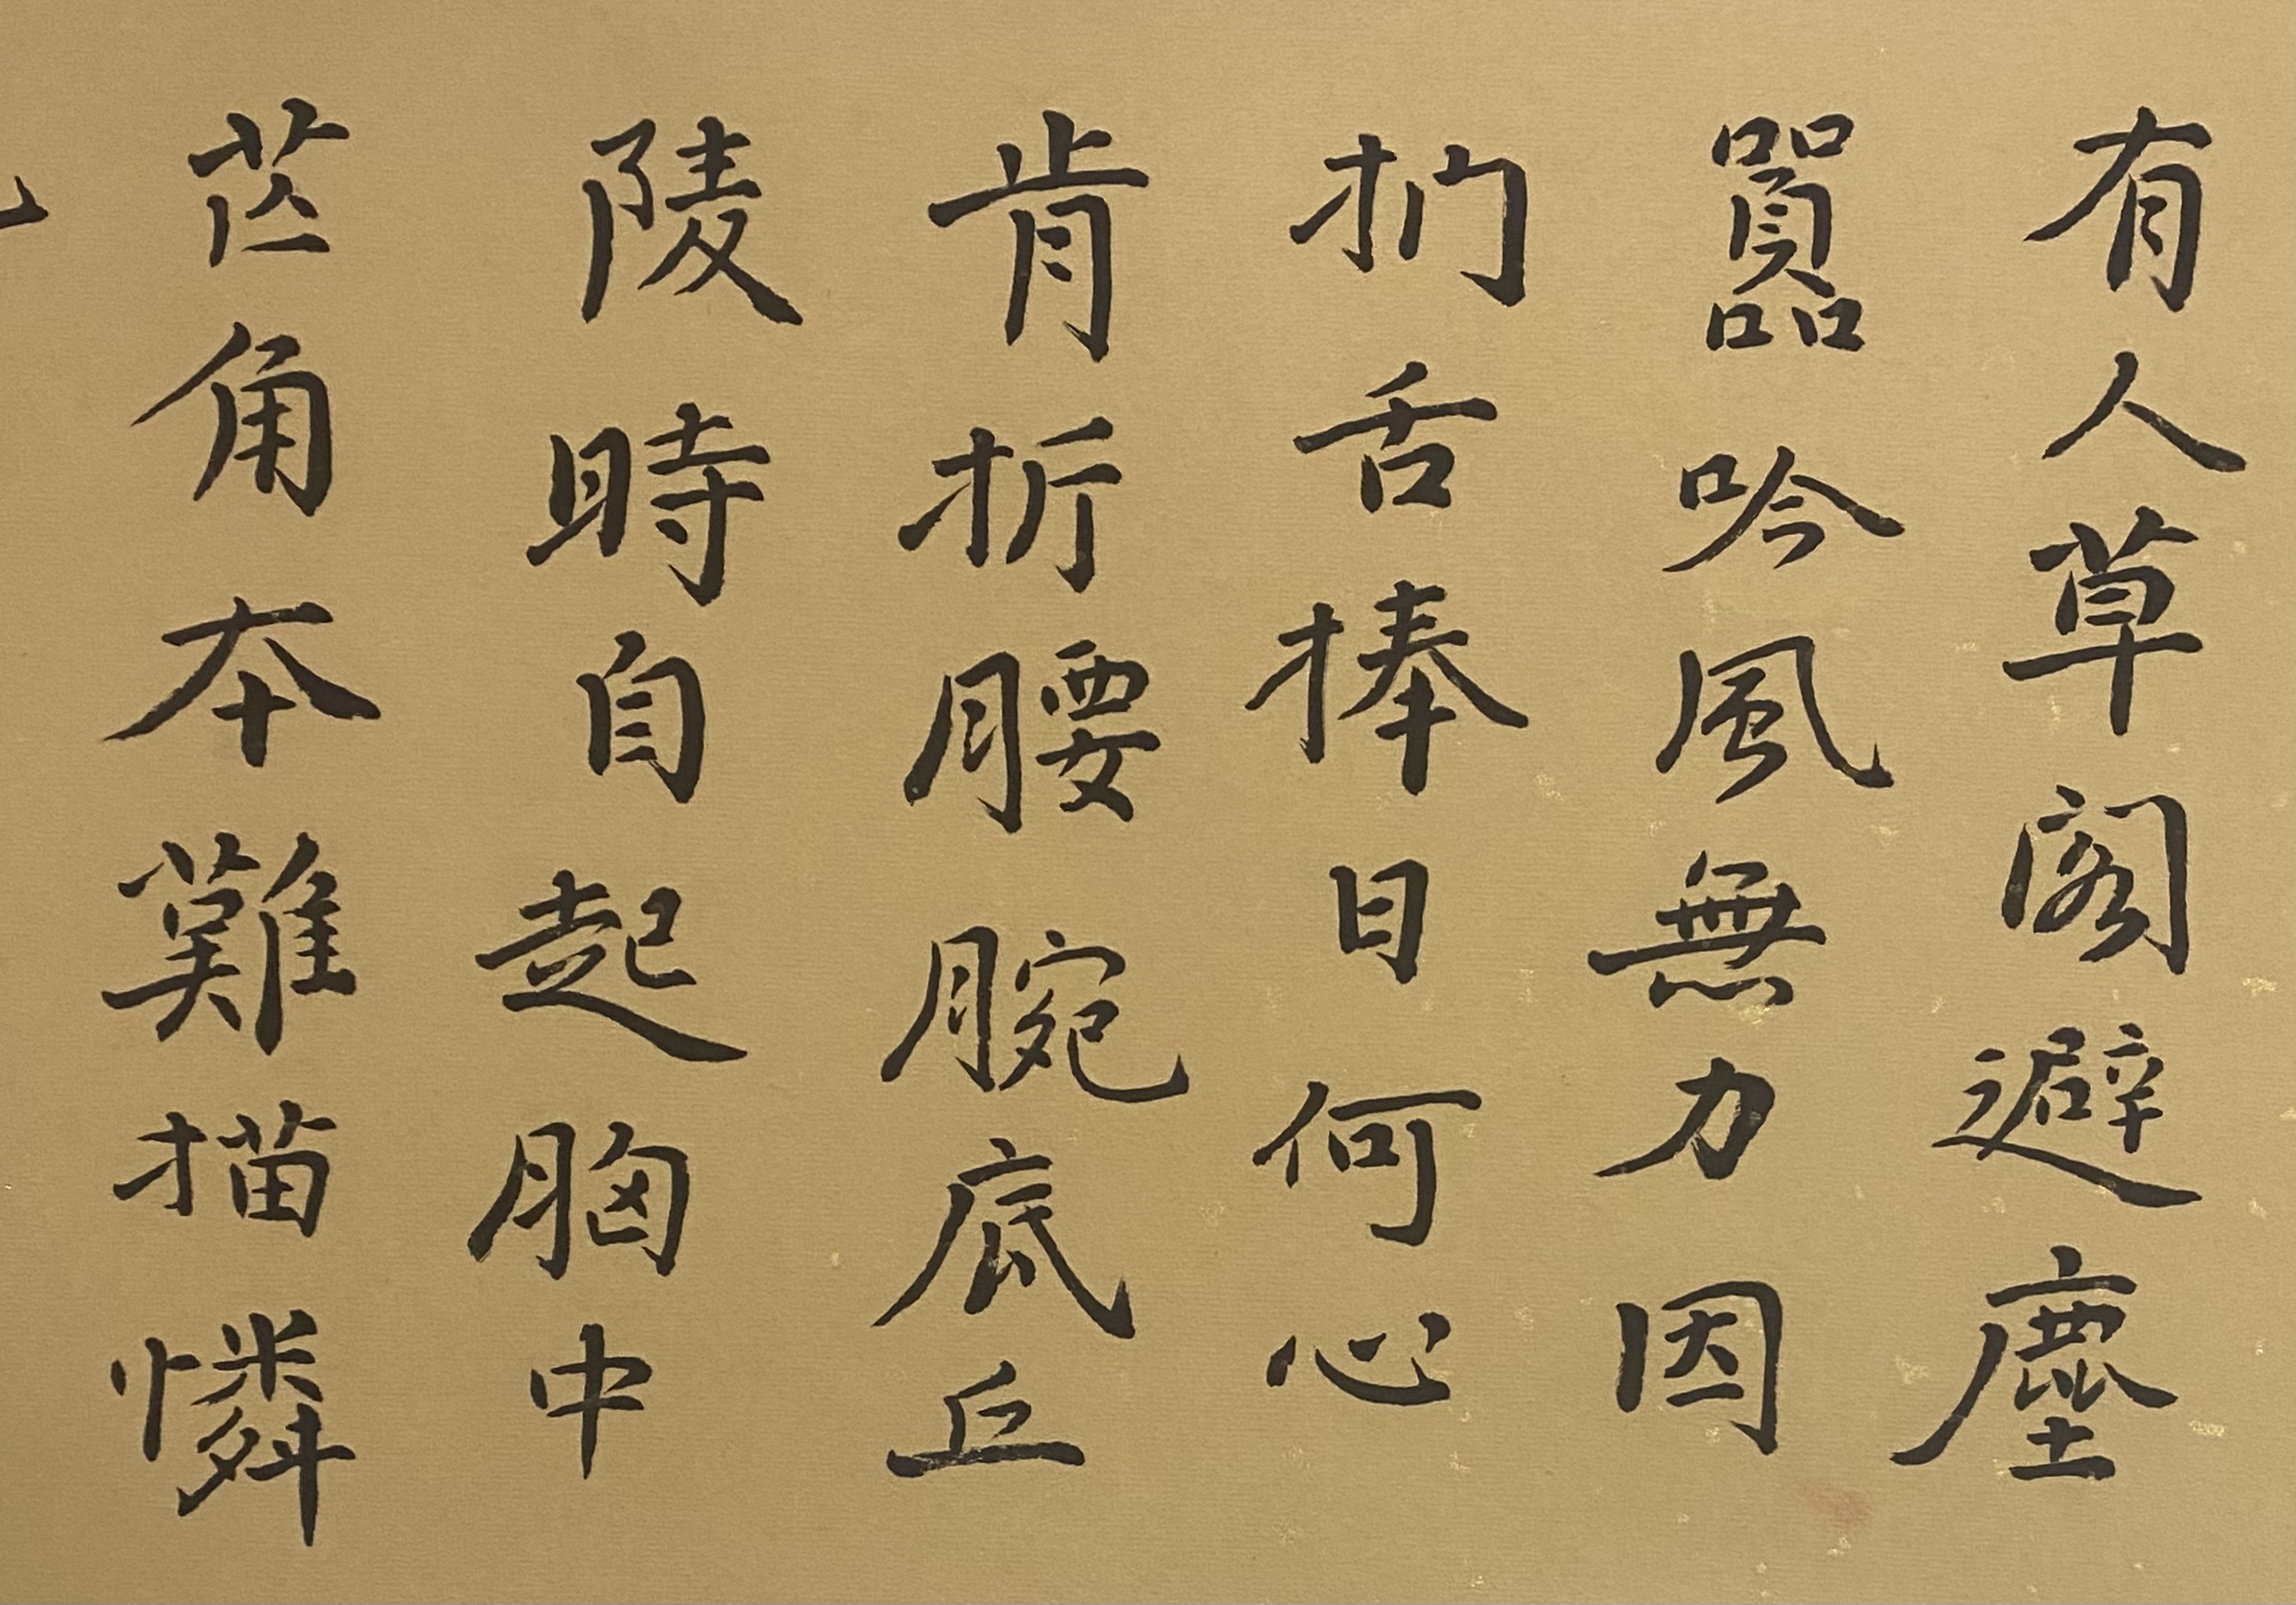 有人草閣避塵
囂吟風無力因
捫舌捧日何心
肯折腰腕底丘
陵時自起胸中
芒角本難描憐